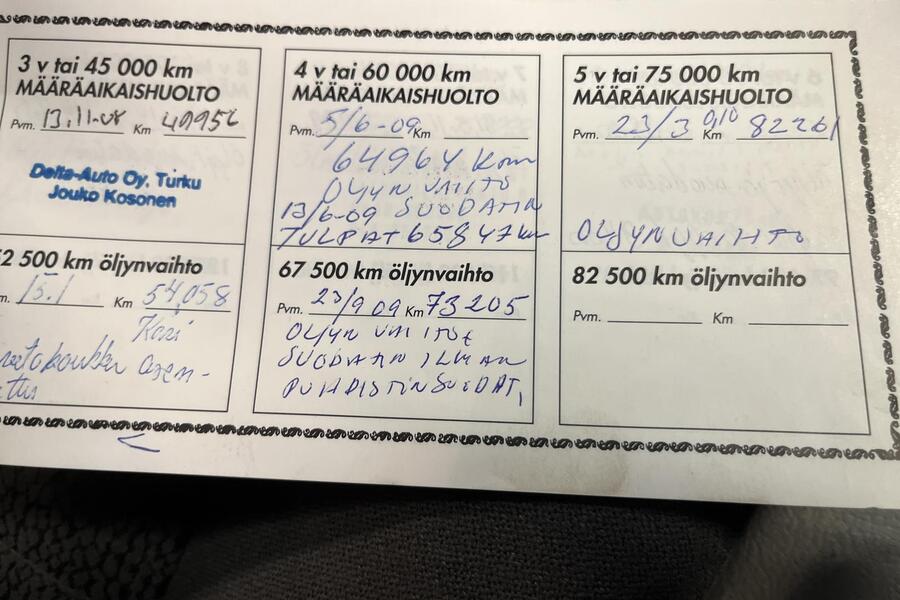 3 v tai 45 000 km
MÄÄRÄAIKAISHUOLTO
Pvm. 13.11-08 Km 49956
Delta-Auto Oy, Turku
Jouko Kosonen
2 500 km öljynvaihto
m. 15.1 Km 54.058
4 v tai 60 000 km
MÄÄRÄAIKAISHUOLTO
Pvm. 5/6-09 Km
64964 Km
OLJYN VAIHTO
13/6-09 SUODATIN
TULPAT 65847 km
67 500 km öljynvaihto
Pvm. 23/9 09 Km 73205
OLJYN VAIHTO
SUODATIN ILMAN
PUHDISTIN SUODAT,
5 v tai 75 000 km
MÄÄRÄAIKAISHUOLTO
Pvm. 23/3 010 Km 82261
OLJYNVAIHTO
82 500 km öljynvaihto
Pvm. Km